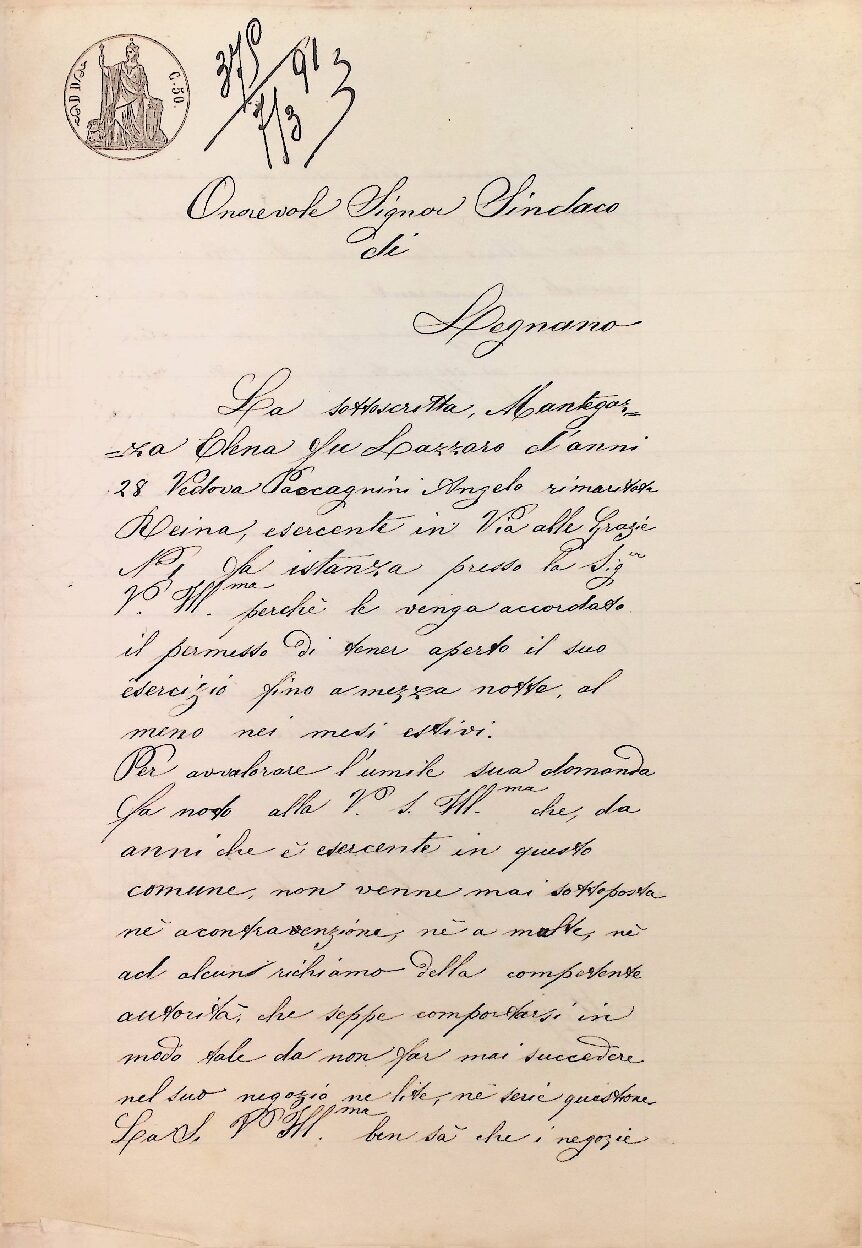 C. 50.
375 91
7/3
Onorevole Signor Sindaco
di
Legnano
La sottoscritta, Mantegaz=
=za Elena fu Lazzaro d'anni
28 Vedova Paccagnini Angelo rimaritata
Reina, esercente in Via alle Grazie
N° 1 fa istanza presso la Sig.ria
V. Ill.ma perchè le venga accordato
il permesso di tener aperto il suo
esercizio fino a mezza notte, al
meno nei mesi estivi.
Per avvalorare l'umile sua domanda
fa noto alla V. S. Ill.ma che, da
anni che è esercente in questo
comune, non venne mai sottoposta
nè a contravenzione, nè a multe, nè
ad alcun richiamo della competente
autorità, che seppe comportarsi in
modo tale da non far mai succedere
nel suo negozio ne lite, nè serie questione
La S. V. Ill.ma ben sà che i negozie